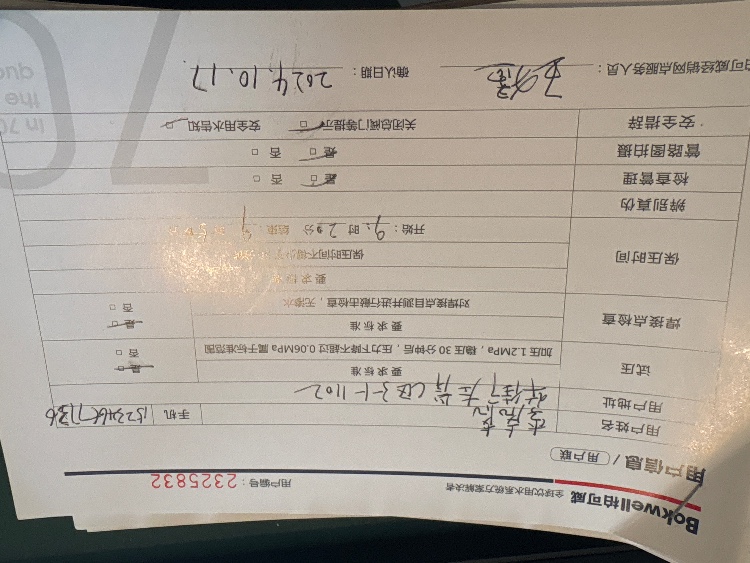 Bokwell柏可威 全球饮用水系统方案解决者
用户编号：2325832
用户信息 / 用户联
用户姓名
手机
用户地址 C区3-1-1102
试压
要求标准
加压1.2MPa，稳压30分钟后，压力下降不超过0.06MPa属于标准范围
是 □
否 □
焊接点检查
要求标准
对焊接点目测并进行敲击检查，无渗水
是 □
否 □
保压时间
要求标准
保压时间不
开始：9 时 20 分 结束：9
辨别真伪
检查管理 是 □ 否 □
管路图拍摄 是 □ 否 □
安全措辞 关闭总阀门等提示 □ 安全用水告知 □
柏可威经销网点服务人员：
确认日期：2024.10.17
in 70
the
qub